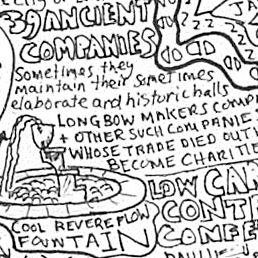 39 ANCIENT
COMPANIES
Sometimes they
maintain their sometimes
elaborate and historic halls
LONG BOW MAKERS COMP
+ OTHER SUCH COMPANIE
WHOSE TRADE DIED OUT
BECOME CHARITIE
LOW CA
CONT
CONFE
COOL REVERE FLOW
FOUNTAIN
ZZZ
JA